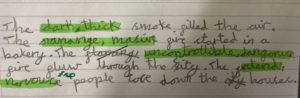 The dark, thick smoke filled the air.
The massive fire started in a
bakery. The uncontrollable, dangerous
fire glew through the city. The
nervous people tore down the houses.